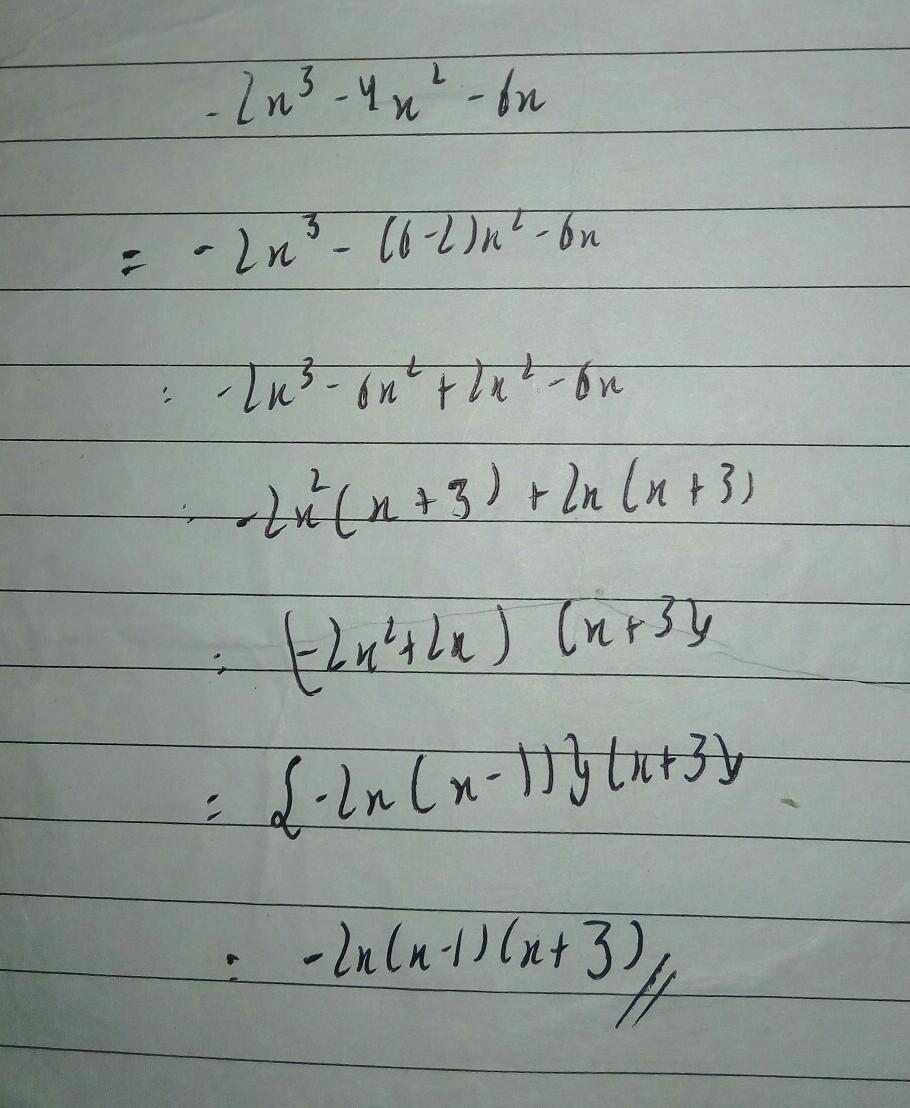 -2x³ - 4x² - 6x
= -2x³ - (6-2)x² - 6x
: -2x³ - 6x² + 2x² - 6x
: -2x² (x + 3) + 2x (x + 3)
: (-2x² + 2x) (x + 3)
= {-2x (x - 1)} (x + 3)
: -2x (x - 1) (x + 3) //